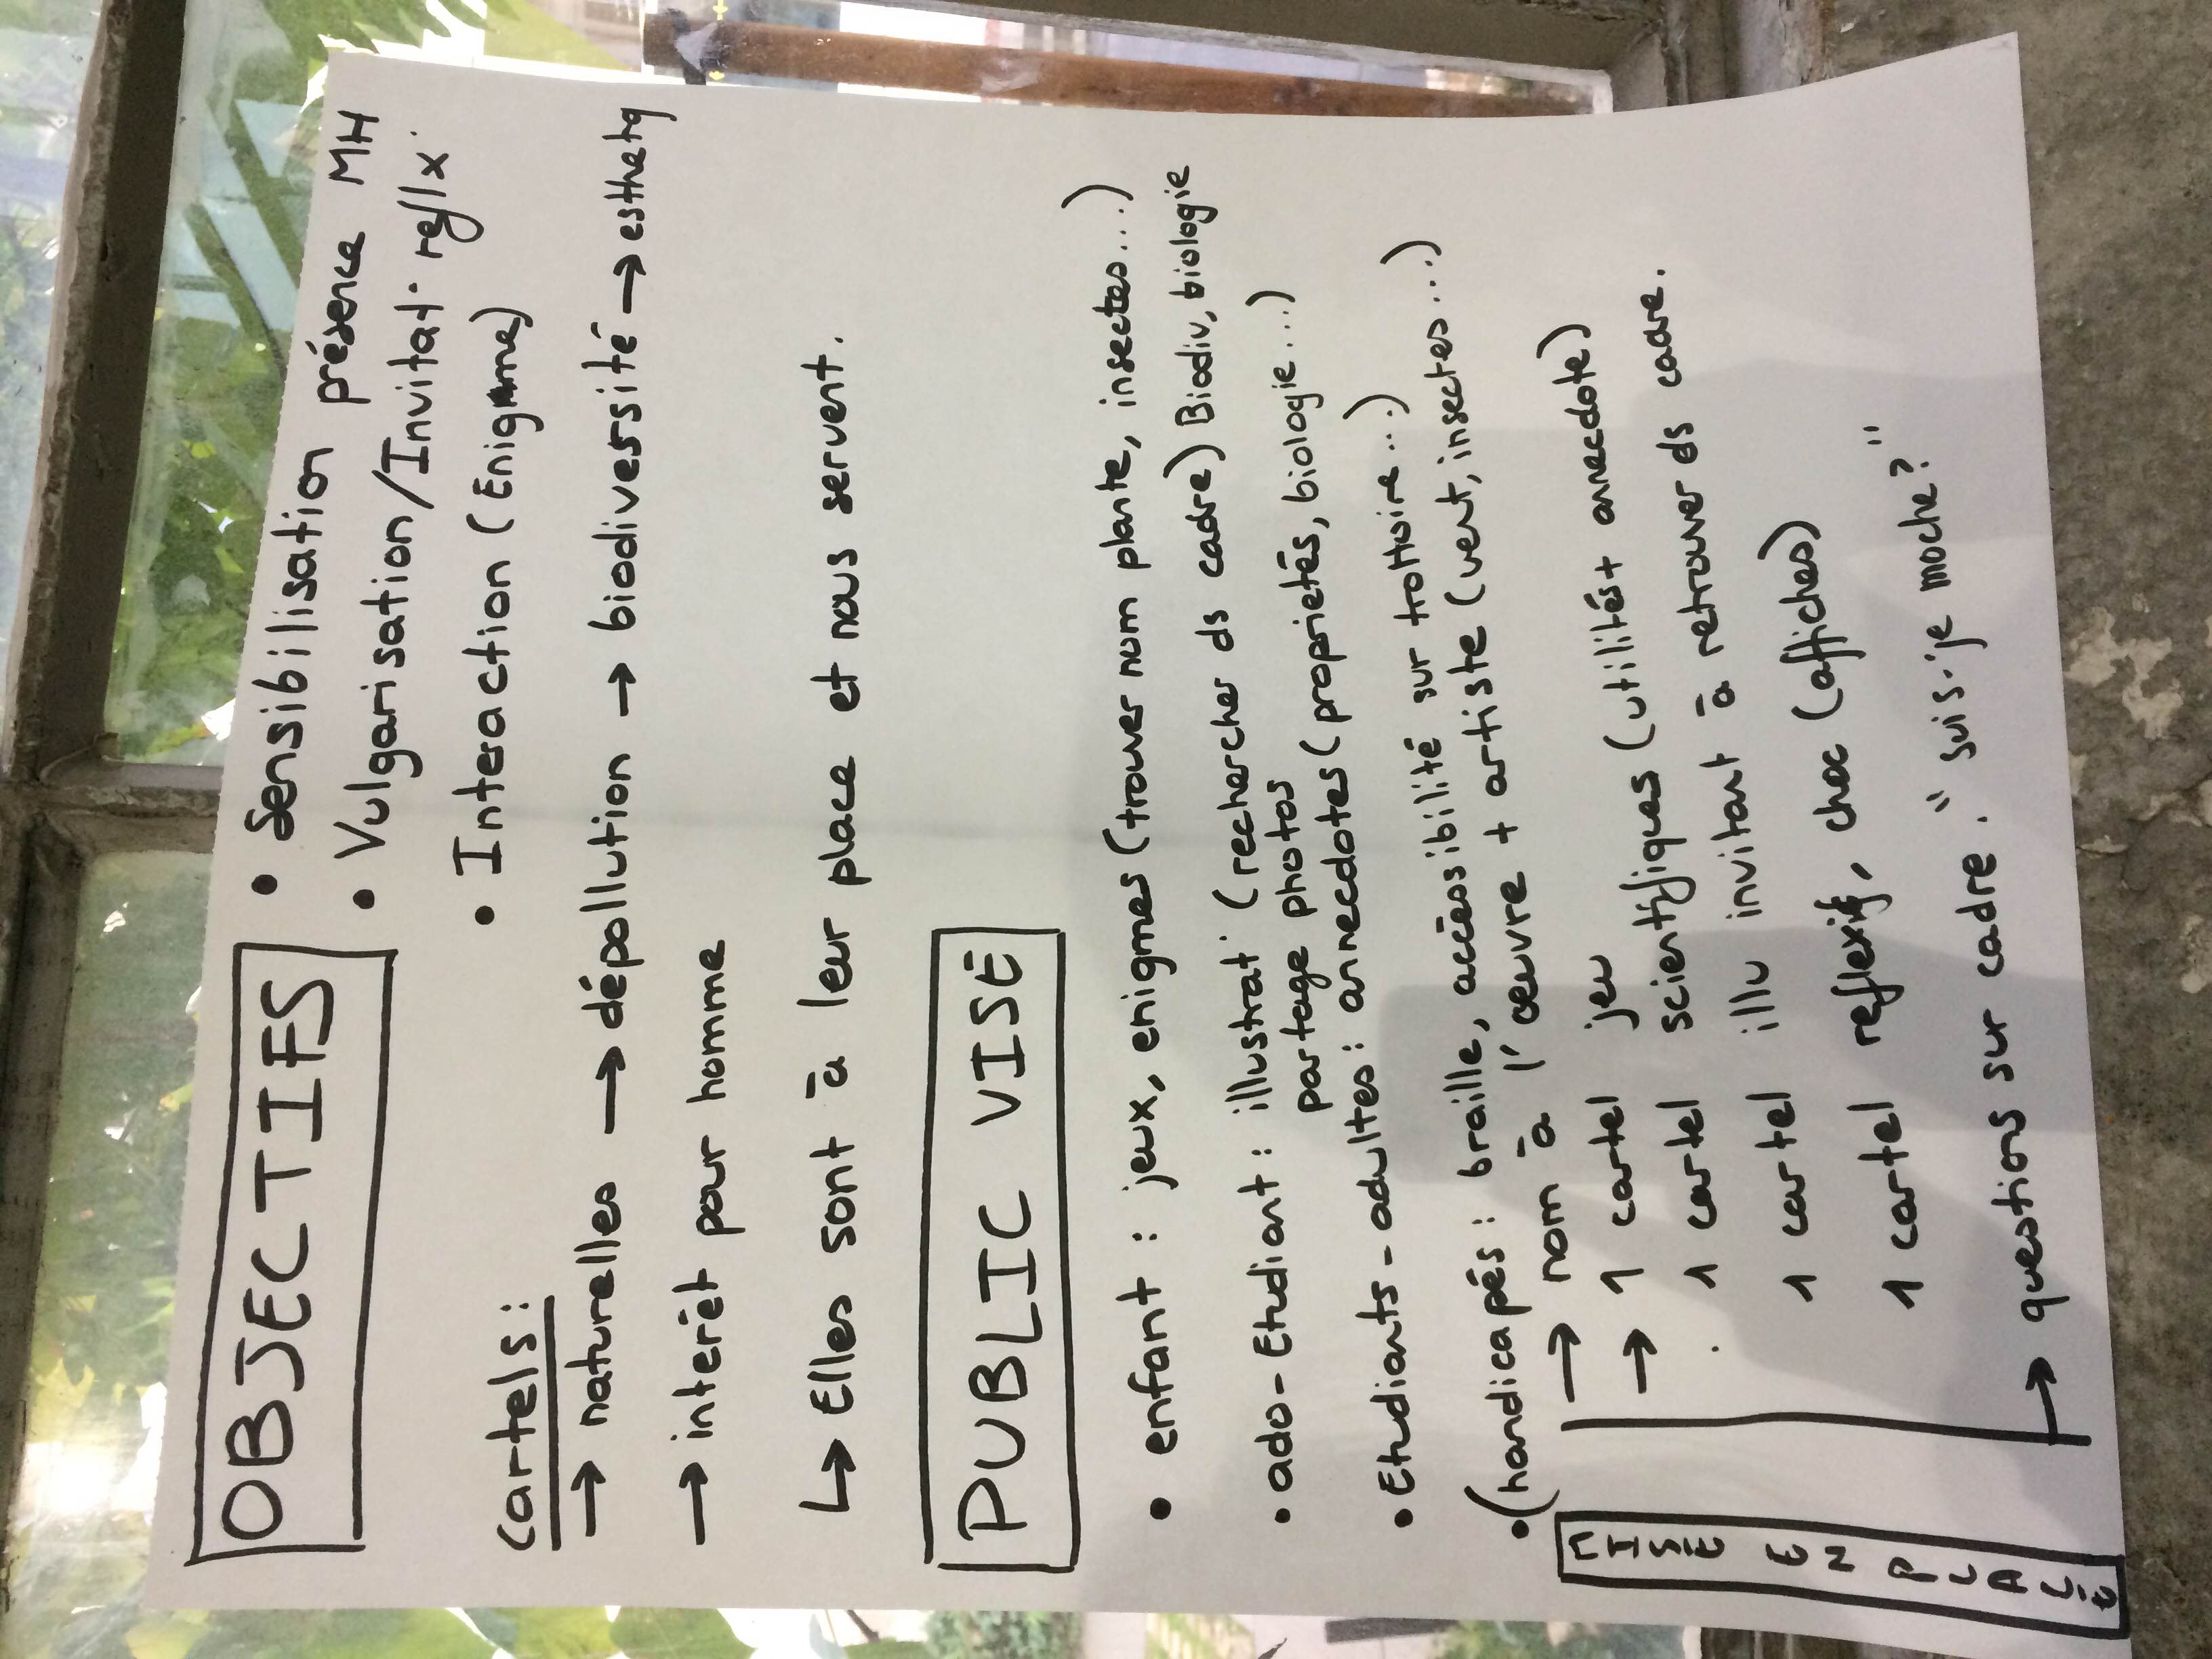 OBJECTIFS
• Sensibilisation présence MH
• Vulgarisation/Invitat° reflx°
• Interaction (Enigme)
Cartels:
→ naturelles → dépollution → biodiversité → esthetq
→ interêt pour homme
↳ Elles sont à leur place et nous servent.
PUBLIC VISÉ
• enfant : jeux, enigmes (trouver nom plante, insectes...)
• ado-Etudiant : illustrat° (rechercher ds cadre) Biodiv, biologie
partage photos
• Etudiants-adultes : annecdotes (proprietés, biologie...)
• (handicapés : braille, accessibilité sur trottoire...)
MISE EN PLACE
→ nom à l'œuvre + artiste (vent, insectes...)
→ 1 cartel jeu
. 1 cartel scientifiques (utilités + annecdote)
1 cartel illu invitant à retrouver ds cadre.
1 cartel reflexif, choc (affiches)
→ questions sur cadre. "suis-je moche?"